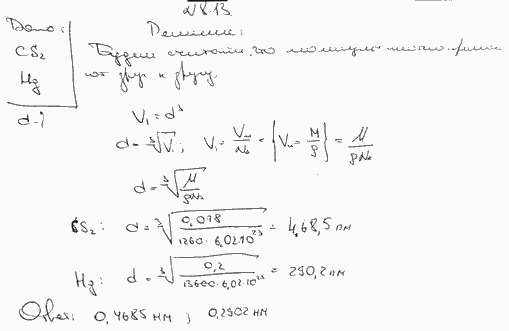 №8.13.
Дано: Решение:
CS₂ Будем считать, что молекулы плотно
Hg друг к другу.
d-? V₁ = d³
d = ∛V₁; V₁ = Vм/Nₐ = {Vм = M/ρ} = M/ρNₐ
d = ∛(M/ρNₐ)
CS₂: d = ∛(0,078/1260·6,02·10²³) = 468,5 пм
Hg: d = ∛(0,2/13600·6,02·10²³) = 290,2 пм
Ответ: 0,4685 нм; 0,2902 нм